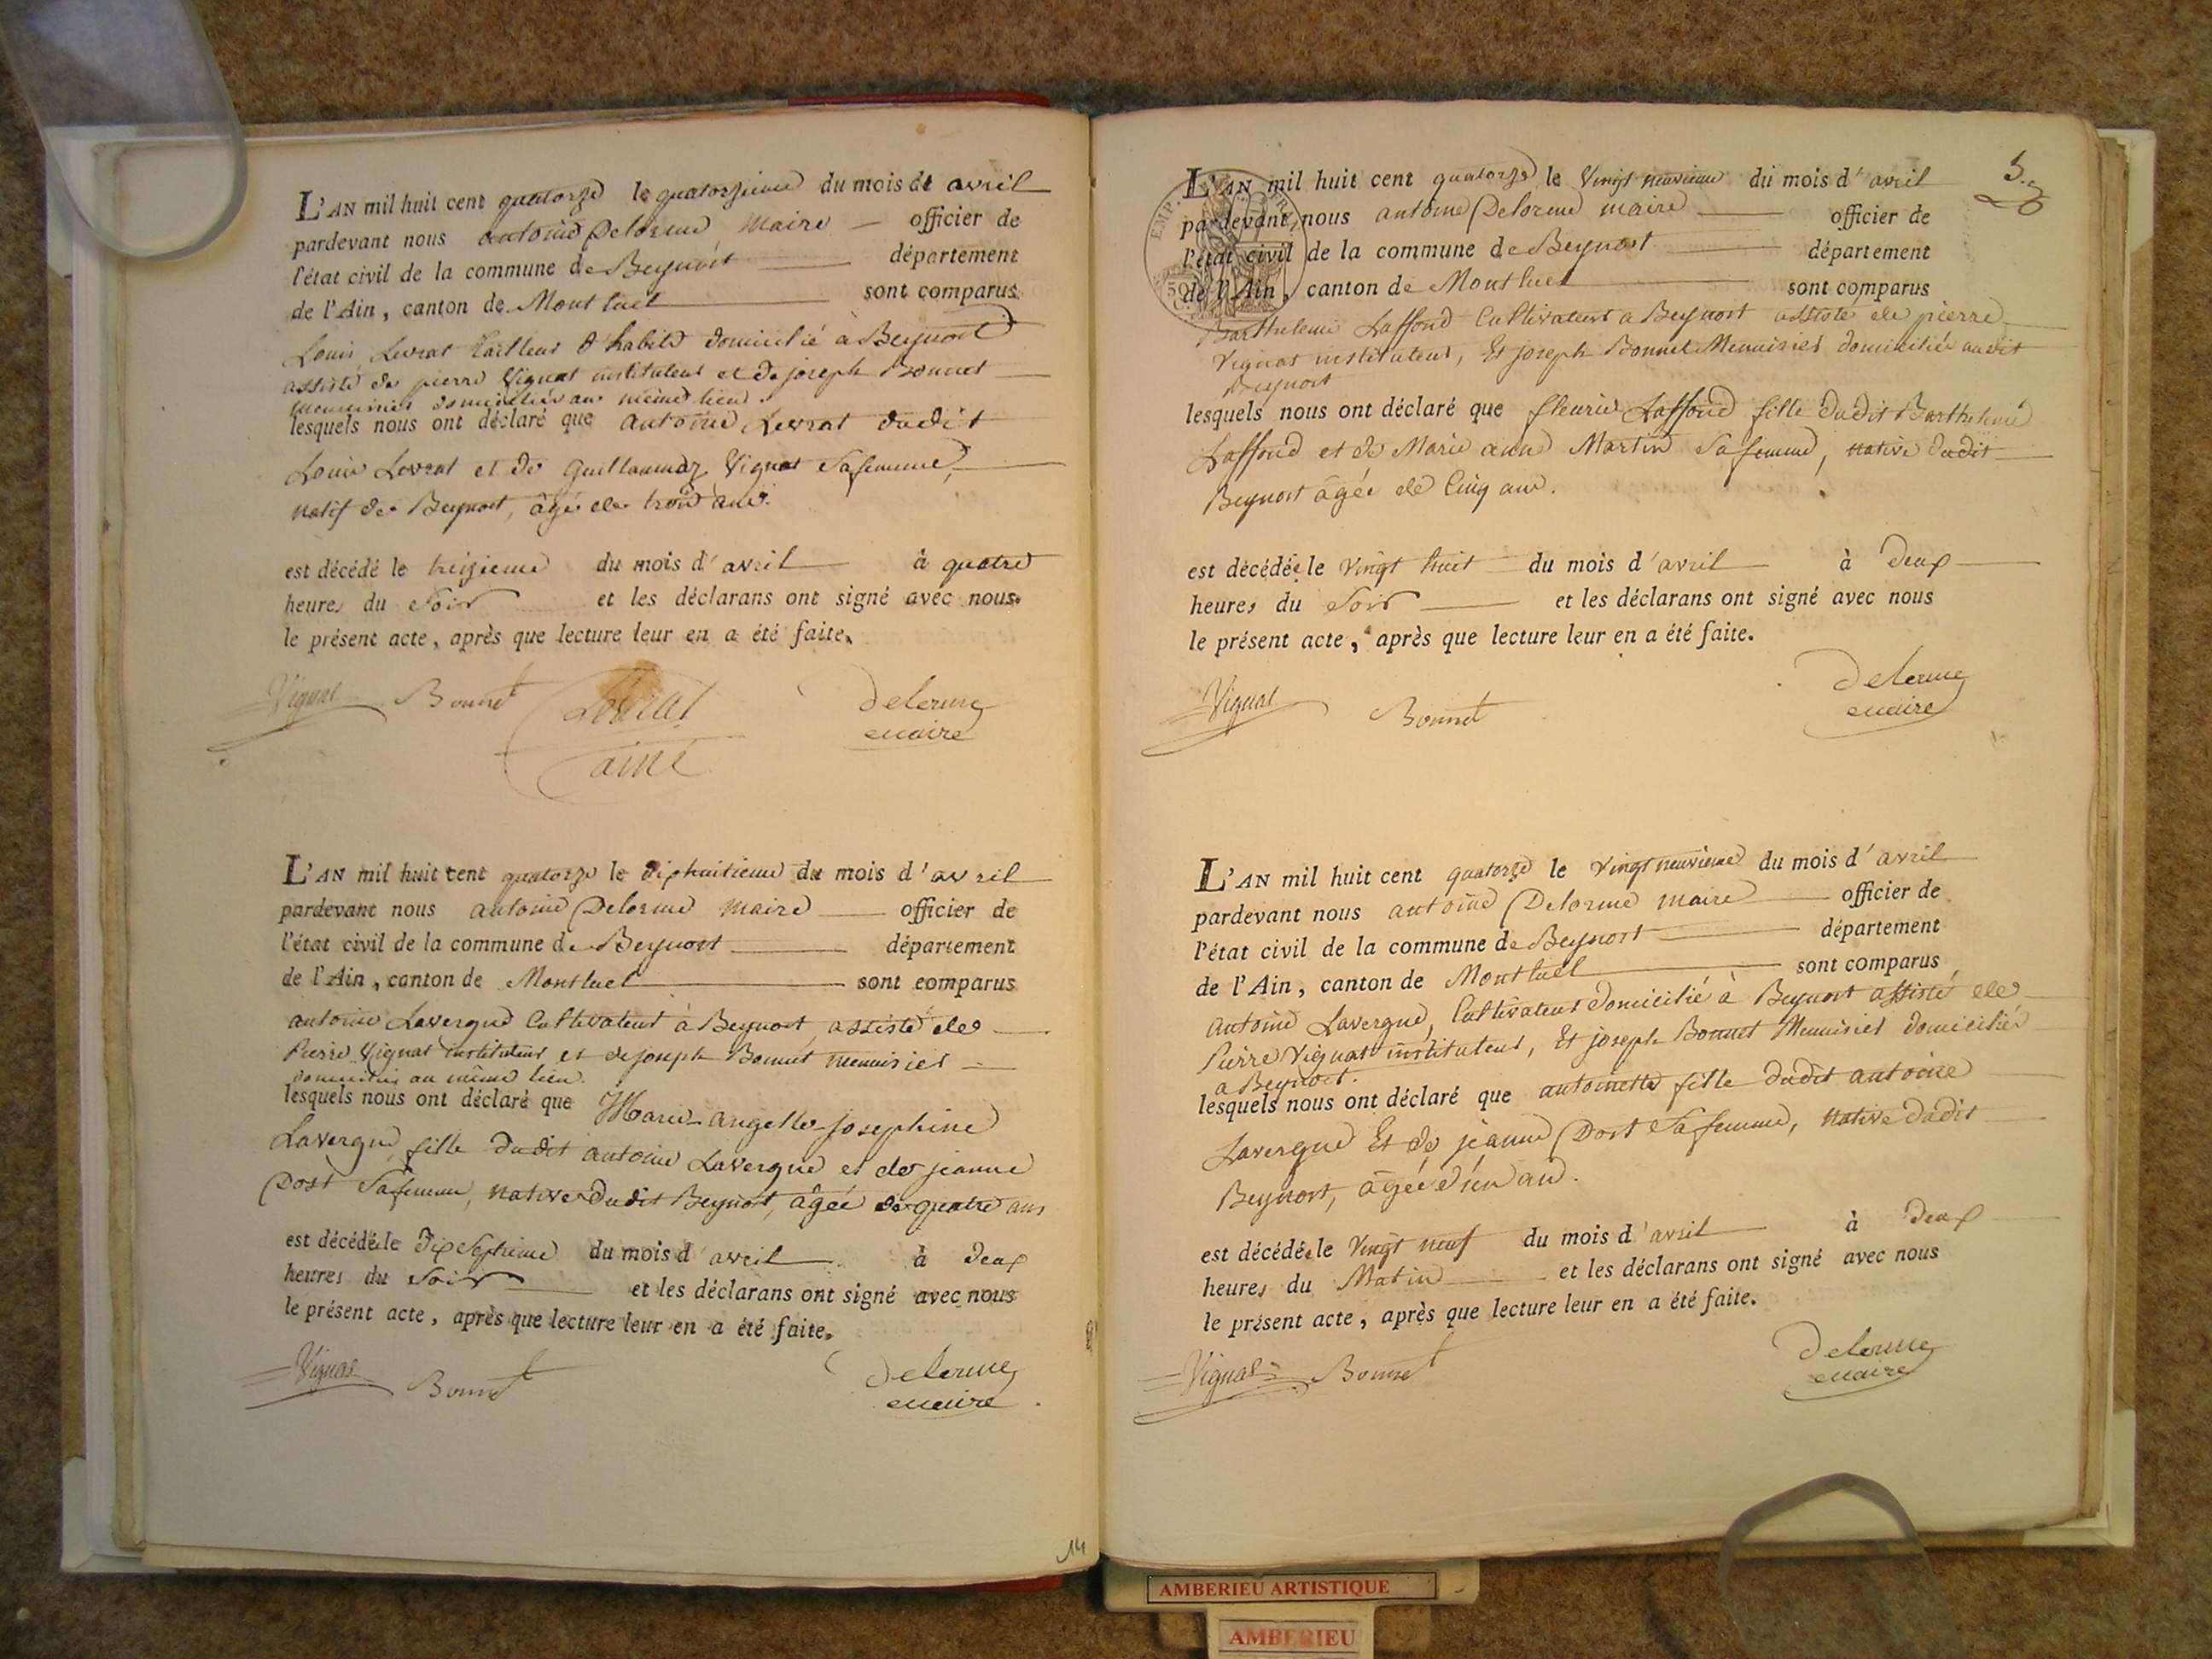 L'AN mil huit cent quatorze le quatorzieme du mois de avril
pardevant nous antoine Delorme maire officier de
l'état civil de la commune de Beynost département
de l'Ain, canton de Montluel sont comparus
Louis Levrat tailleur d'habits domicilié à Beynost
assisté de pierre Vignat instituteur et de joseph Bonnet
menuisier domiciliés au même lieu.
lesquels nous ont déclaré que antoine Levrat dudit
Louis Levrat et de Guillaumaz Vignat sa femme,
natif de Beynost, âgé de trois ans.
est décédé le treizieme du mois d'avril à quatre
heures du soir et les déclarans ont signé avec nous
le présent acte, après que lecture leur en a été faite.
Vignat Bonnet Levrat Delorme
ainé maire
L'AN mil huit cent quatorze le dixhuitieme du mois d'avril
pardevant nous antoine Delorme maire officier de
l'état civil de la commune de Beynost département
de l'Ain, canton de Montluel sont comparus
antoine Lavergne Cultivateur à Beynost, assisté de
Pierre Vignat instituteur et de joseph Bonnet menuisier
domiciliés au même lieu.
lesquels nous ont déclaré que Marie angelle josephine
Lavergne, fille dudit antoine Lavergne et de jeanne
Dost sa femme, native dudit Beynost, âgée de quatre ans
est décédée le dix septieme du mois d'avril à deux
heures du soir et les déclarans ont signé avec nous
le présent acte, après que lecture leur en a été faite.
Vignat Bonnet Delorme
maire
14
5.
L'AN mil huit cent quatorze le vingt neuvieme du mois d'avril
pardevant nous antoine Delorme maire officier de
l'état civil de la commune de Beynost département
de l'Ain, canton de Montluel sont comparus
Barthelemi Laffond Cultivateur a Beynost assisté de pierre
Vignat instituteur, Et joseph Bonnet Menuisier domiciliés audit
Beynost
lesquels nous ont déclaré que fleurie Laffond fille dudit Barthelemi
Laffond et de Marie anne Martin sa femme, native dudit
Beynost âgée de Cinq ans.
est décédée le vingt huit du mois d'avril à deux
heures du soir et les déclarans ont signé avec nous
le présent acte, après que lecture leur en a été faite.
Vignat Bonnet Delorme
maire
L'AN mil huit cent quatorze le vingt neuvieme du mois d'avril
pardevant nous antoine Delorme maire officier de
l'état civil de la commune de Beynost département
de l'Ain, canton de Montluel sont comparus
antoine Lavergne, Cultivateur domicilié à Beynost assisté de
Pierre Vignat instituteur, Et joseph Bonnet Menuisier domiciliés
a Beynost.
lesquels nous ont déclaré que antoinette fille dudit antoine
Lavergne Et de jeanne Dost sa femme, native dudit
Beynost, âgée d'un an.
est décédée le vingt neuf du mois d'avril à deux
heures du Matin et les déclarans ont signé avec nous
le présent acte, après que lecture leur en a été faite.
Vignat Bonnet Delorme
maire
AMBERIEU ARTISTIQUE
AMBERIEU